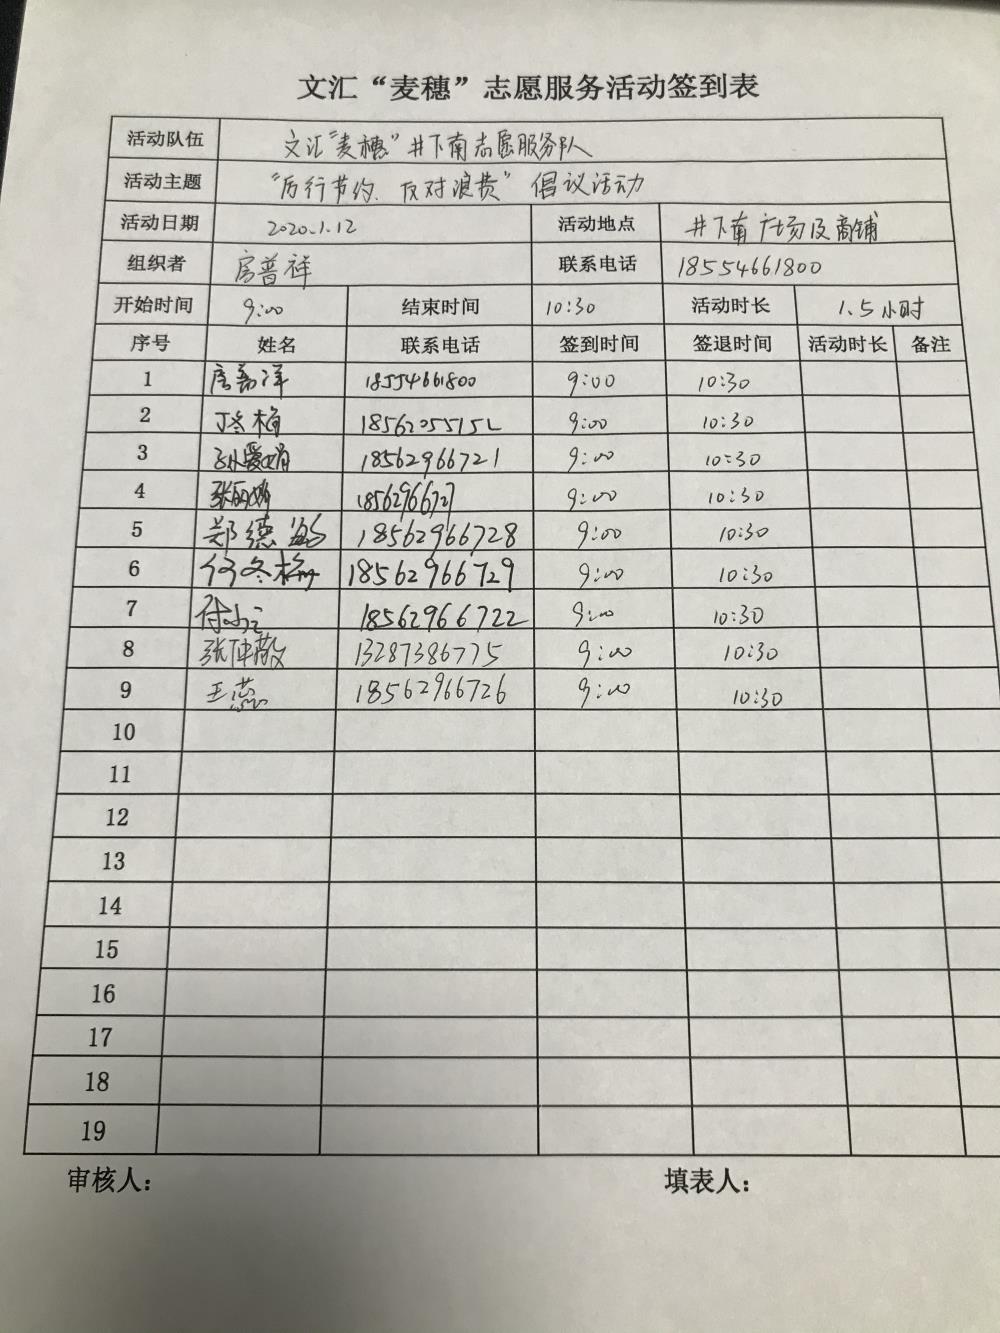 文汇“麦穗”志愿服务活动签到表
活动队伍 文汇“麦穗”井下南志愿服务队
活动主题 “厉行节约、反对浪费”倡议活动
活动日期 2020.1.12 活动地点 井下南广场及商铺
组织者 房普祥 联系电话 18554661800
开始时间 9:00 结束时间 10:30 活动时长 1.5小时
序号 姓名 联系电话 签到时间 签退时间 活动时长 备注
1 房普祥 18554661800 9:00 10:30
2 丁冬梅 18562055152 9:00 10:30
3 孙爱娟 18562966721 9:00 10:30
4 张 1856296672 9:00 10:30
5 郑德 18562966728 9:00 10:30
6 何冬梅 18562966729 9:00 10:30
7 付 18562966722 9:00 10:30
8 张仲敬 13287386775 9:00 10:30
9 王蕊 18562966726 9:00 10:30
10
11
12
13
14
15
16
17
18
19
审核人： 填表人：